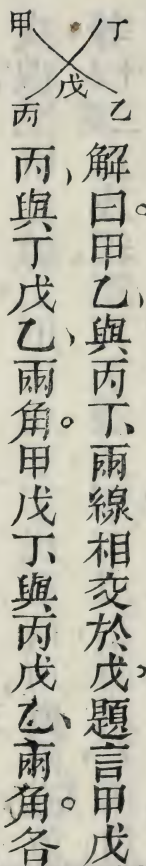 甲 丁
戊
丙 乙
解曰。甲乙、與丙丁、兩線相交於戊。題言甲戊
丙、與丁戊乙、兩角。甲戊丁、與丙戊乙、兩角。各